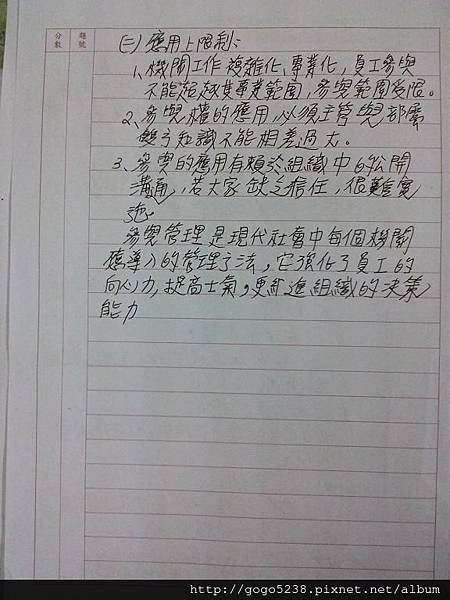 分數
題號
(二)應用上限制:
1、機關工作複雜化、專業化,員工參與
不能超越其專業範圍,參與範圍受限。
2、參與權的應用,必須主管與部屬
雙方知識不能相差過大。
3、參與的應用有賴於組織中的公開
溝通,若大家缺乏信任,很難實
施。
參與管理是現代社會中每個機關
應導入的管理方法,它強化了員工的
向心力,提高士氣,更促進組織的決策
能力
http://gogo5238.pixnet.net/album